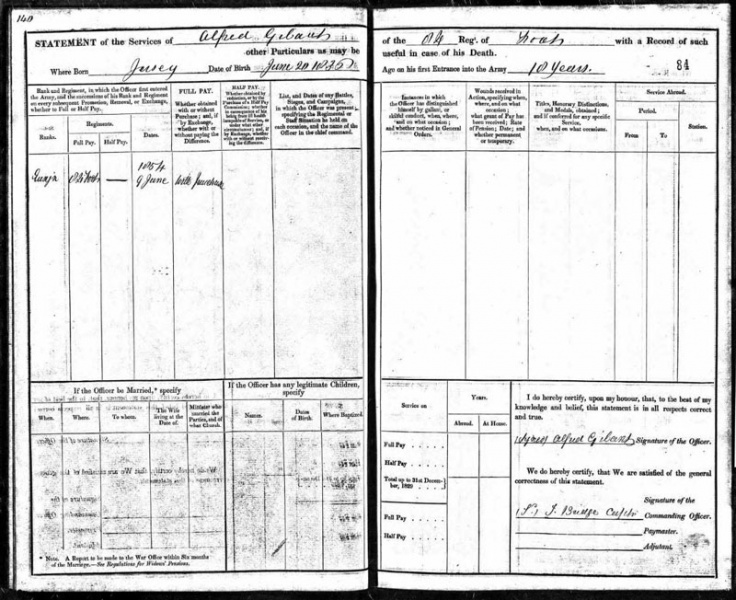 140
STATEMENT of the Services of Alfred Gibaut
other Particulars as may be
Where Born Jersey Date of Birth June 20
of the 84 Regt. of Foot with a Record of such
useful in case of his Death.
Age on his first Entrance into the Army 18 Years.
84
Rank and Regiment, in which the Officer first entered
the Army, and the succession of his Rank and Regiment
on every subsequent Promotion, Removal, or Exchange,
whether to Full or Half Pay.
Ranks.
Regiments.
Full Pay.
Half Pay.
Dates.
FULL PAY.
Whether obtained
with or without
Purchase; and, if
by Exchange,
whether with or
without paying the
Difference.
HALF PAY.
List, and Dates of any Battles,
Sieges, and Campaigns,
in which the Officer was present;
specifying the Regimental or
Staff Situation he held on
each occasion, and the name of the
Officer in the chief command.
Instances in which
the Officer has distinguished
himself by gallant, or
skilful conduct, when, where,
and on what occasion;
and whether noticed in General
Orders.
Wounds received in
Action, specifying when,
where, and on what
occasion;
what grant of Pay has
been received; Rate
of Pension; Date; and
whether permanent
or temporary.
Titles, Honorary Distinctions,
and Medals, obtained;
and if conferred for any specific
Service,
when, and on what occasions.
Service Abroad.
Period.
From
To
Station.
1854
9 June
If the Officer be Married,* specify
When.
Where.
To whom.
The Wife
living at the
Date of.
Minister who
married the
Parties, and of
what Church.
If the Officer has any legitimate Children,
specify
Names.
Dates
of Birth.
Where Baptized.
* Note. A Report to be made to the War Office within Six months
of the Marriage.—See Regulations for Widows' Pensions.
Service on
Years.
Abroad.
At Home.
Full Pay . . . .
Half Pay . . . .
Total up to 31st Decem-
ber, 1829 . . . .
Full Pay . . . .
Half Pay . . . .
I do hereby certify, upon my honour, that, to the best of my
knowledge and belief, this statement is in all respects correct
and true.
Signed Alfred Gibaut Signature of the Officer.
We do hereby certify, that We are satisfied of the general
correctness of this statement.
Signature of the
Commanding Officer.
Paymaster.
Adjutant.